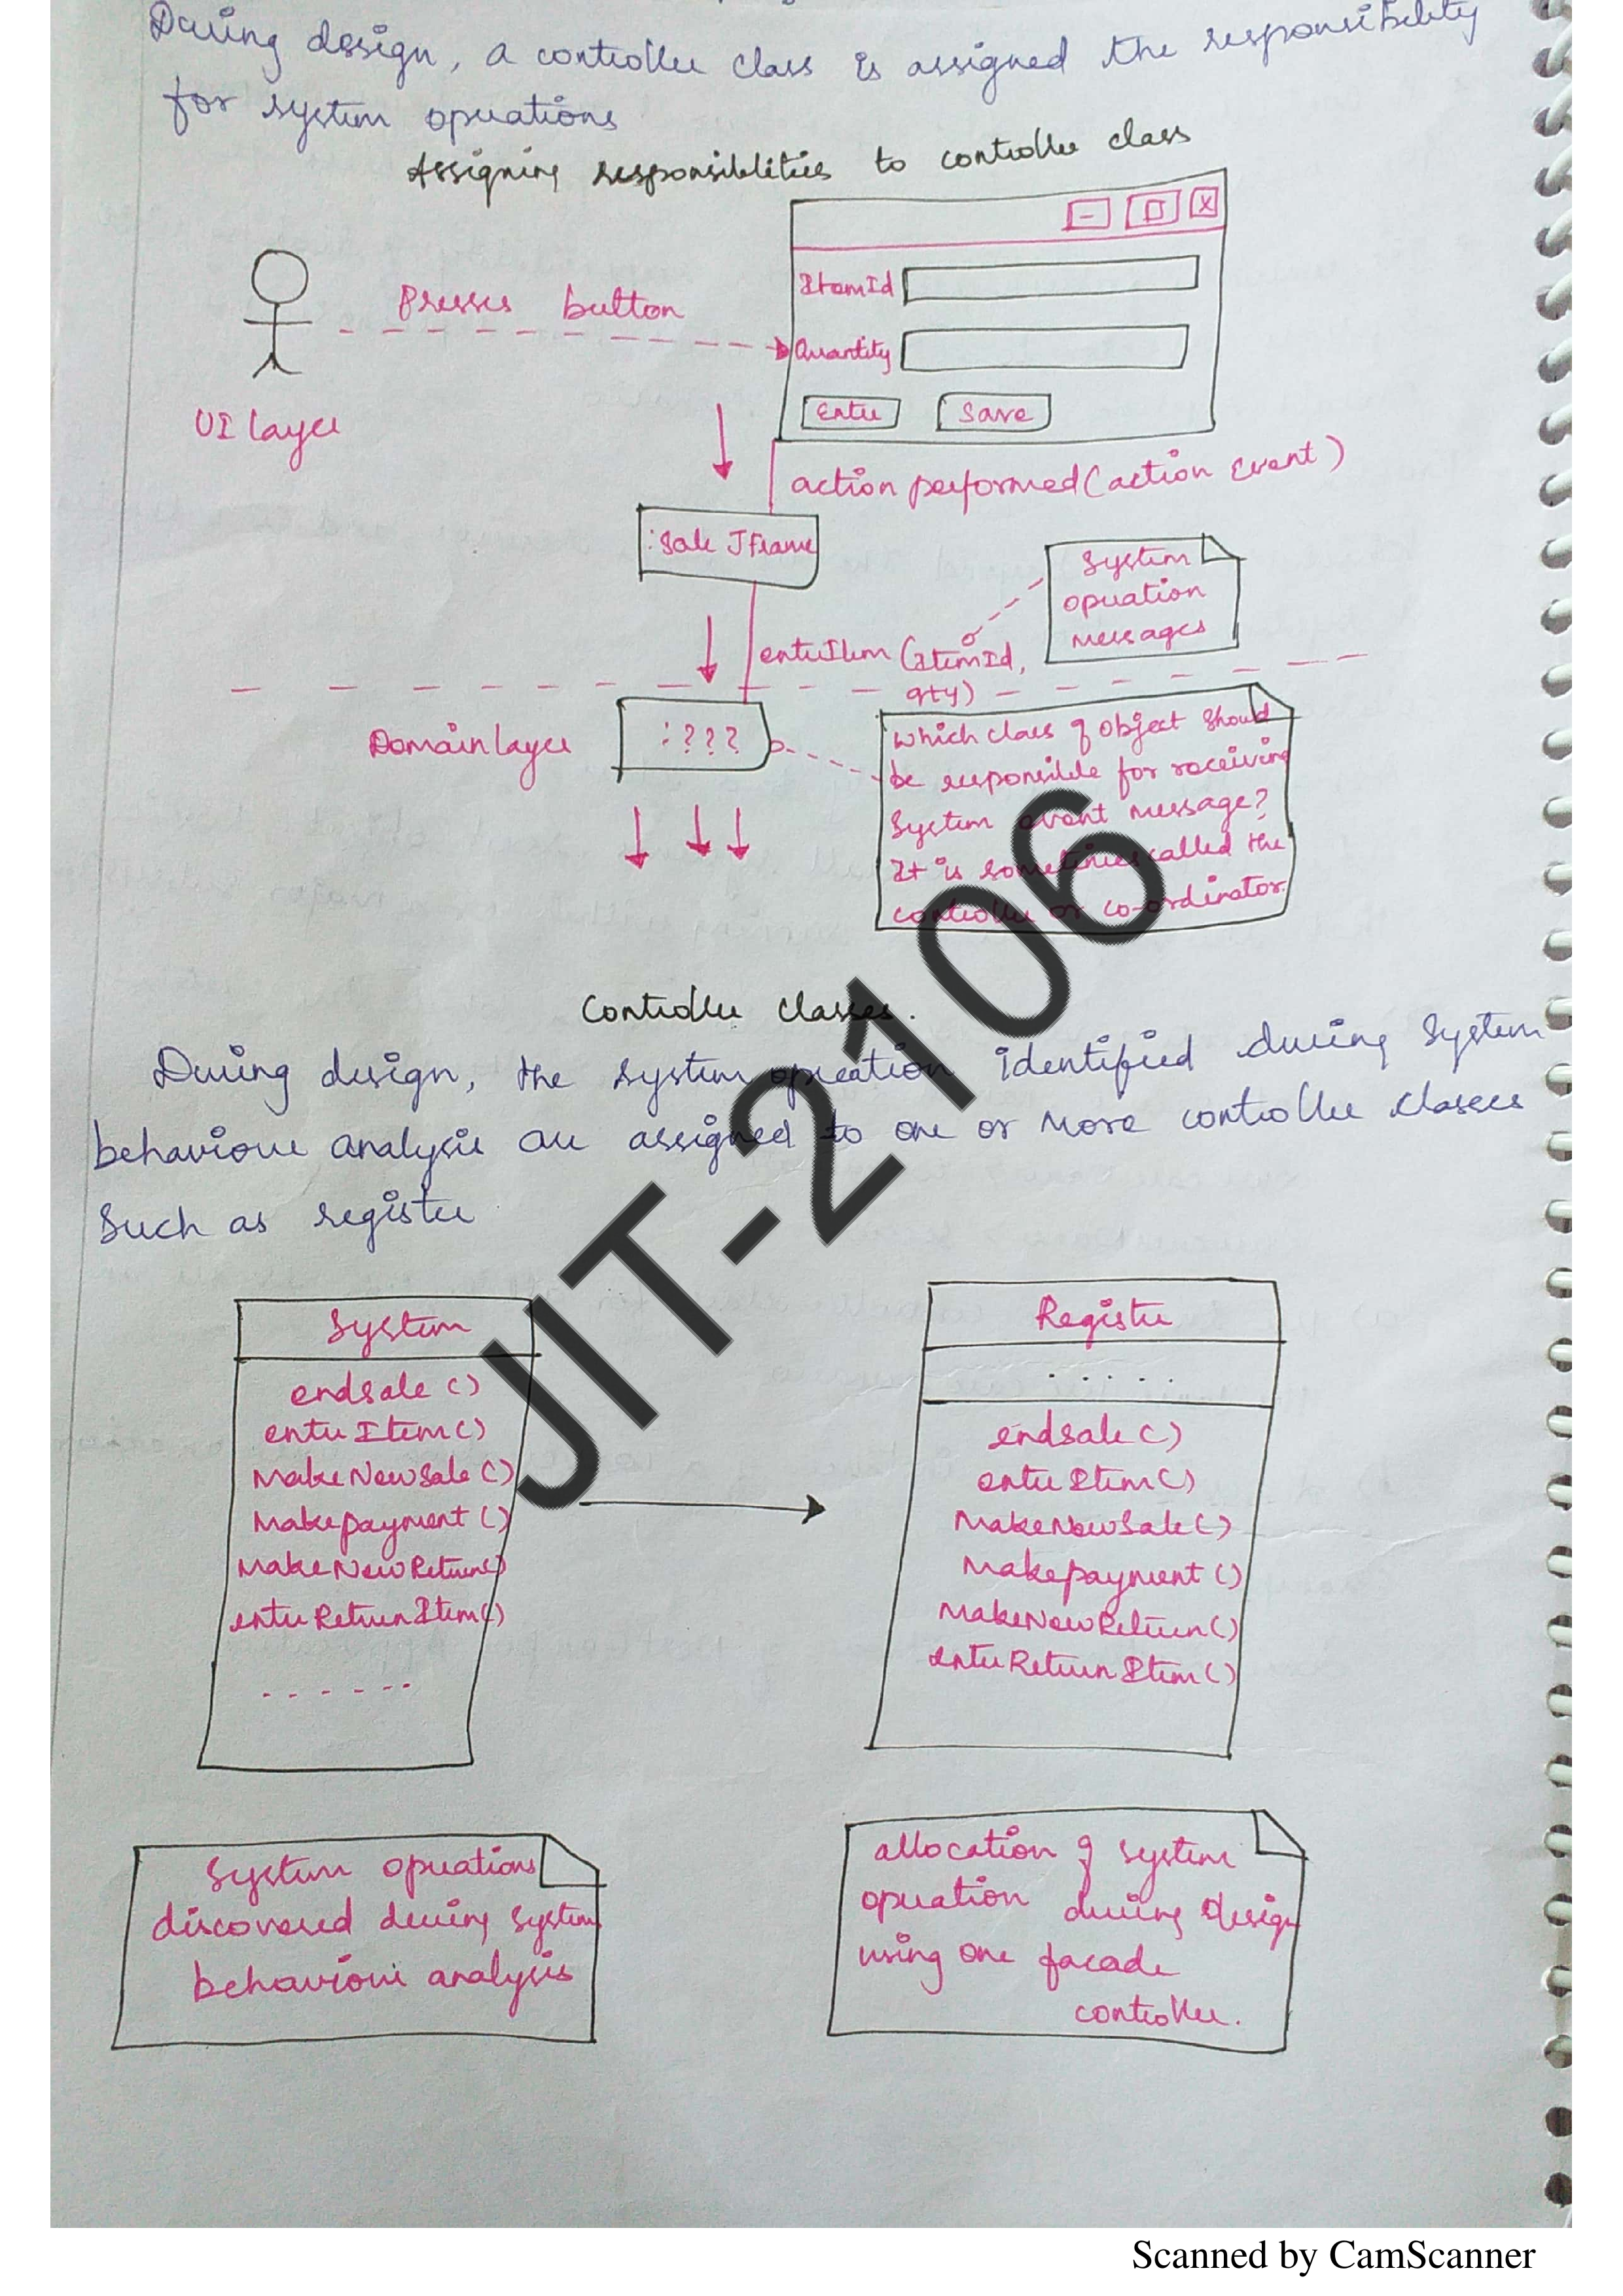 During design, a controller class is assigned the responsibility
for system operations
Assigning responsiblities to controller class
- □ X
ItemId
Presses button
Quantity
Enter Save
UI layer
action performed(action Event)
:Sale JFrame
System
operation
messages
enterItem (ItemId,
qty)
Domain layer
:???
which class of object should
be responsible for receiving
System event message?
It is sometimes called the
controller or co-ordinator.
Controller classes.
During design, the system operation identified during System
behaviour analysis are assigned to one or more controller classes
Such as register
System
endsale ()
enterItem()
MakeNewSale ()
Makepayment ()
MakeNewReturn()
enterReturnItem()
......
Register
.....
endsale ()
enterItem()
MakeNewSale()
Makepayment ()
MakeNewReturn()
enterReturnItem()
System operations
discovered during system
behaviour analysis
allocation of system
operation during design
using one facade
controller.
JIT-2106
Scanned by CamScanner